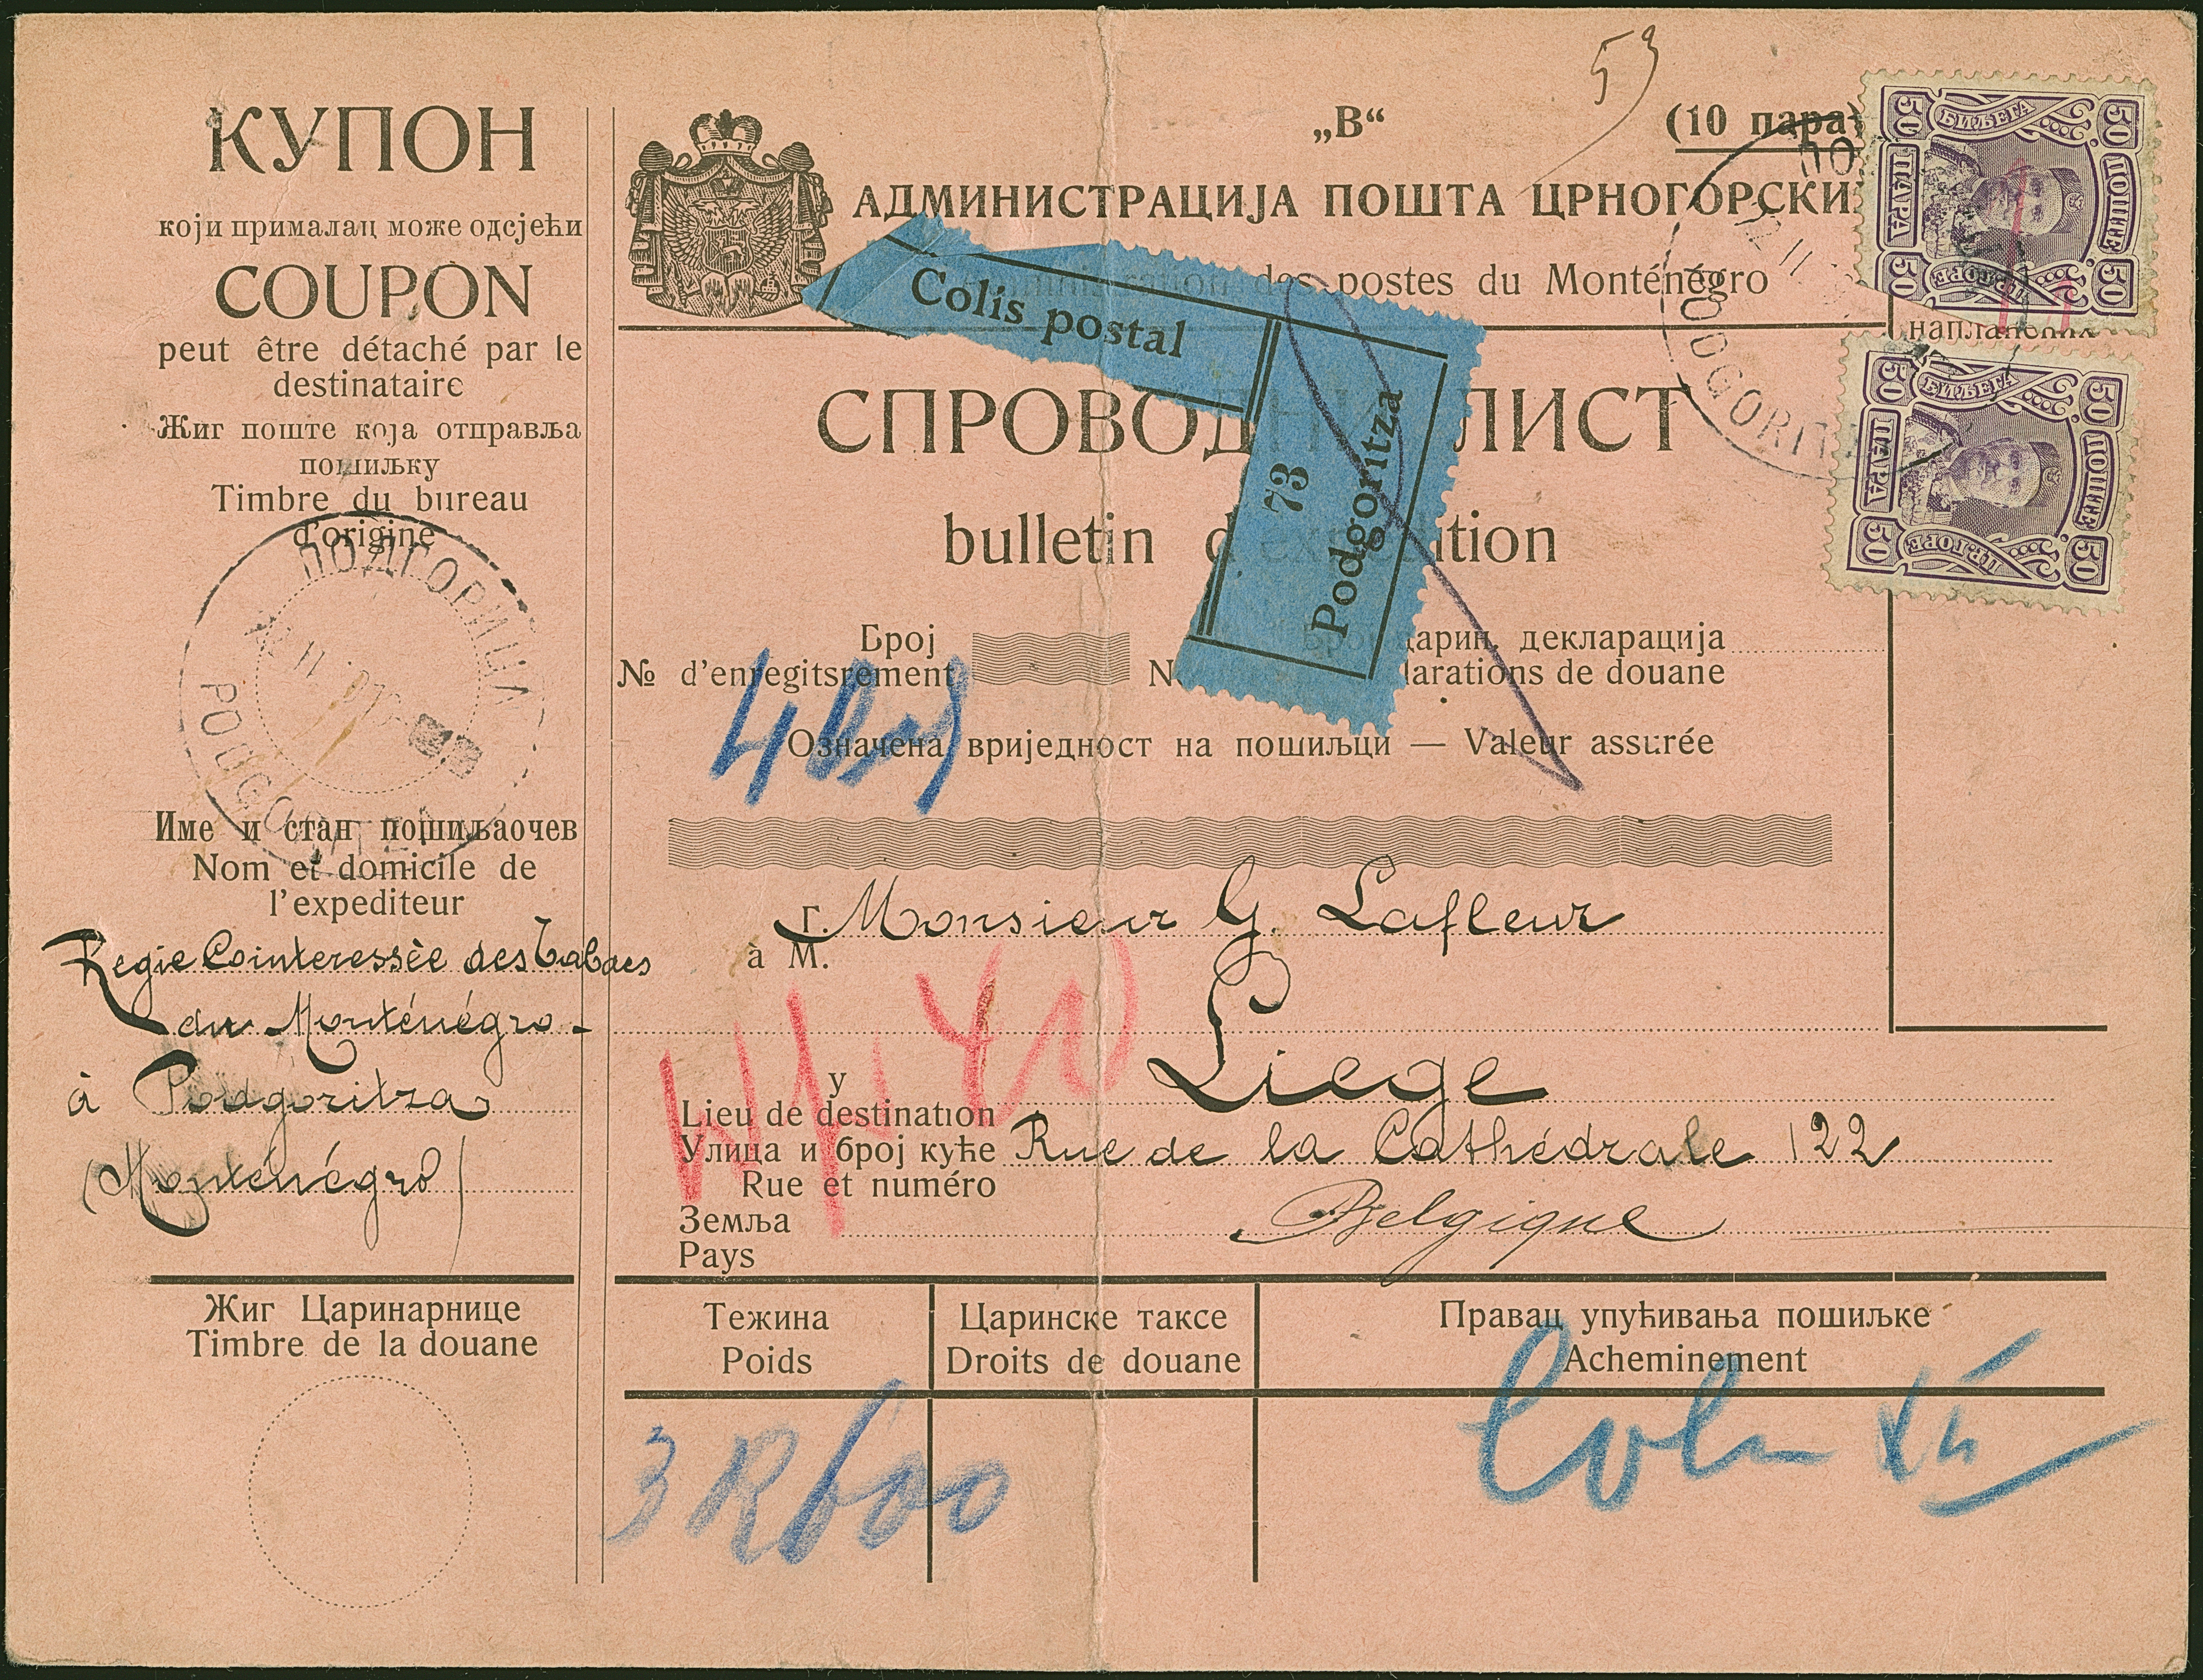 КУПОН
који прималац може одсјећи
COUPON
peut être détaché par le
destinataire
Жиг поште која отправља
пошиљку
Timbre du bureau
d'origine
ПОДГОРИЦА
PODGORITZA
Име и стан пошиљаочев
Nom et domicile de
l'expediteur
Regie Cointeressèe des Tabacs
du Monténégro -
à Podgoritza
(Monténégro)
Жиг Царинарнице
Timbre de la douane
53
„В“ (10 пара)
АДМИНИСТРАЦИЈА ПОШТА ЦРНОГОРСКИ
des postes du Monténégro
Colis postal
73
Podgoritza
СПРОВОД ЛИСТ
bulletin d ition
50 БИЉЕГА 50
ПАРА ПОШТЕ
50 ЦР.ГОРЕ 50
50 БИЉЕГА 50
ПАРА ПОШТЕ
50 ЦР.ГОРЕ 50
12 II
PODGORITZA
Број царин. декларација
№ d'enregitsrement N larations de douane
Означена вриједност на пошиљци — Valeur assurée
г. Monsieur G. Lafleur
à M.
у Liege
Lieu de destination
Улица и број куће Rue de la Cathédrale 122
Rue et numéro
Земља Belgique
Pays
Тежина Царинске таксе Правац упућивања пошиљке
Poids Droits de douane Acheminement
3 K 600